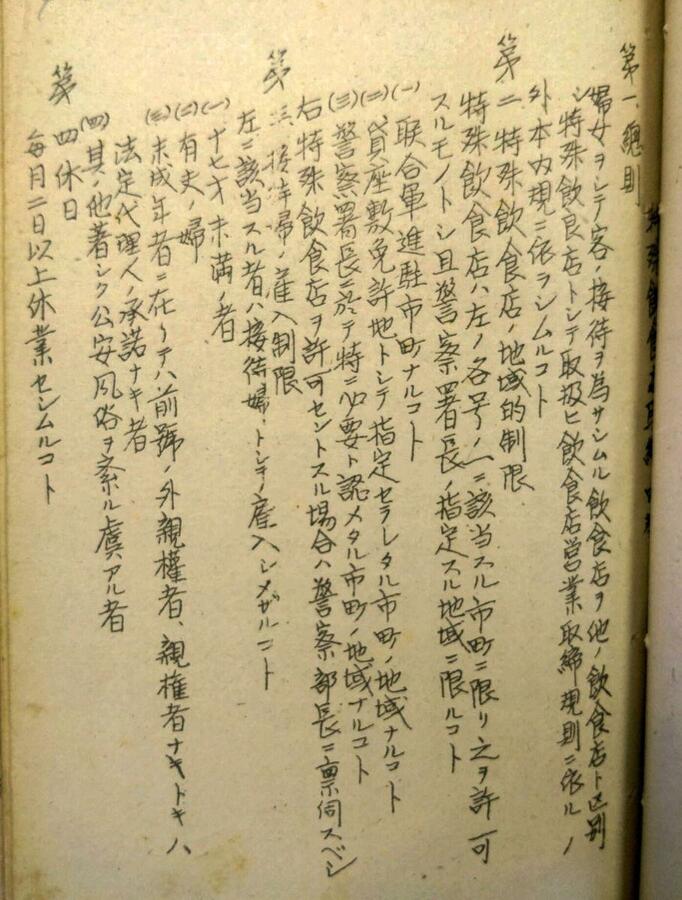 第一、總則
婦女ヲシテ客ノ接待ヲ為サシムル飲食店ヲ他ノ飲食店ト区別
シ特殊飲食店トシテ取扱ヒ飲食店営業取締規則ニ依ルノ
外本内規ニ依ラシムルコト
第二 特殊飲食店ノ地域的制限
特殊飲食店ハ左ノ各号ノ一ニ該当スル市町ニ限リ之ヲ許可
スルモノトシ且警察署長ノ指定スル地域ニ限ルコト
(一)联合軍進駐市町ナルコト
(二)貸座敷免許地トシテ指定セラレタル市町ノ地域ナルコト
(三)警察署長ニ於テ特ニ必要ト認メタル市町ノ地域ナルコト
右特殊飲食店ヲ許可セントスル場合ハ警察部長ニ禀伺スベシ
第三、接待婦ノ雇入制限
左ニ該当スル者ハ接待婦トシテ雇入シメザルコト
(一)十七才未満ノ者
(二)有夫ノ婦
(三)未成年者ニ在リテハ前號ノ外親權者、親権者ナキトキハ
法定代理人ノ承諾ナキ者
(四)其ノ他著シク公安風俗ヲ紊ル虞アル者
第四 休日
毎月二日以上休業セシムルコト